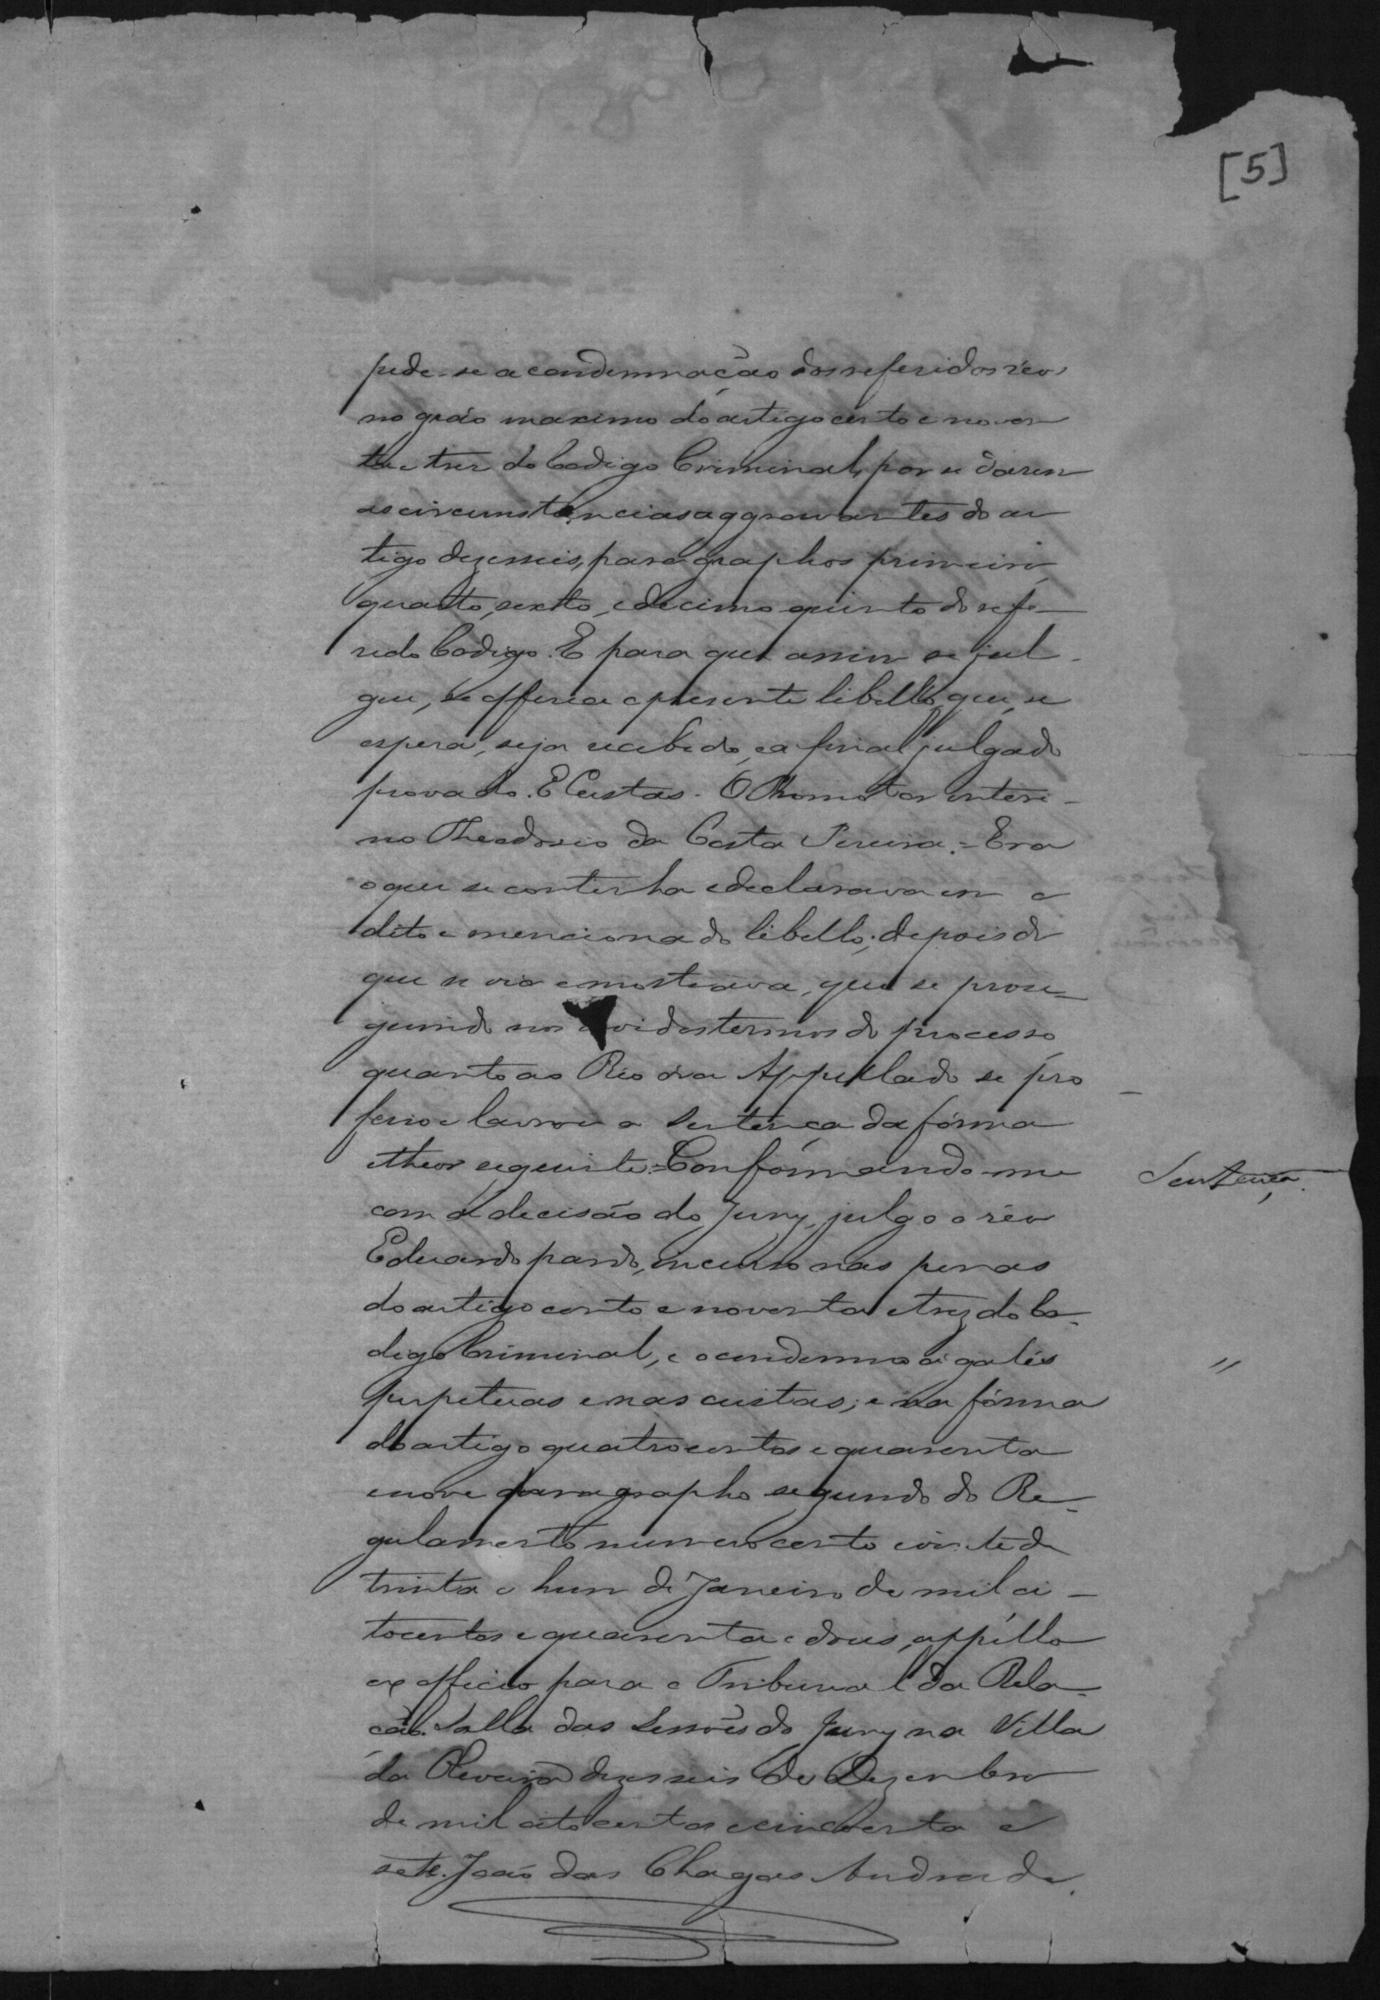 [5]
pede-se a condemnação dos referidos réos
no gráo maximo do artigo cento e noven
ta e trez do Codigo Criminal, por se darem
as circumstancias aggravantes do ar
tigo dezesseis, paragraphos primeiro,
quarto, sexto, e decimo quinto do refe-
rido Codigo. E para que assim se jul-
gue, se offerece o presente libello, que, se
espera, seja recebido, e a final julgado
provado. E Custas. O Promotor interi-
no Theodosio da Costa Pereira.= Era
o que se continha e declarava em o
dito e mencionado libello; depois do
que se via e mostrava, que se prose-
guindo nos devidos termos do processo,
quanto ao Réo ora Appellado se pro
ferio e lavrou a Sentença da fórma
e theor seguinte.= Conformando-me
Sentença.
com a decisão do Jury, julgo o réo
Eduardo pardo, incurso nas penas
do artigo cento e noventa e trez do Co-
digo Criminal, e o condemno a galés
perpetuas e nas custas; e na fórma
do artigo quatrocentos e quarenta
e nove paragrapho segundo do Re-
gulamento numero cento e vinte de
trinta e hum de Janeiro de mil oi-
tocentos e quarenta e dous, appéllo
ex officio para o Tribunal da Rela-
ção. Salla das Sessões do Jury na Villa
da dezesseis de Dezembro
de mil oitocentos e cincoenta e
sete. João das Chagas Andrade.